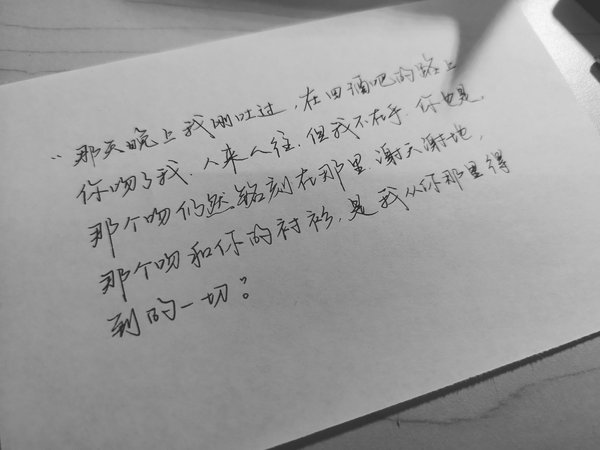 “那天晚上我刚吐过，在回酒吧的路上
你吻了我．人来人往．但我不在乎．你也是．
那个吻仍然铭刻在那里．谢天谢地，
那个吻和你的衬衫，是我从你那里得
到的一切。